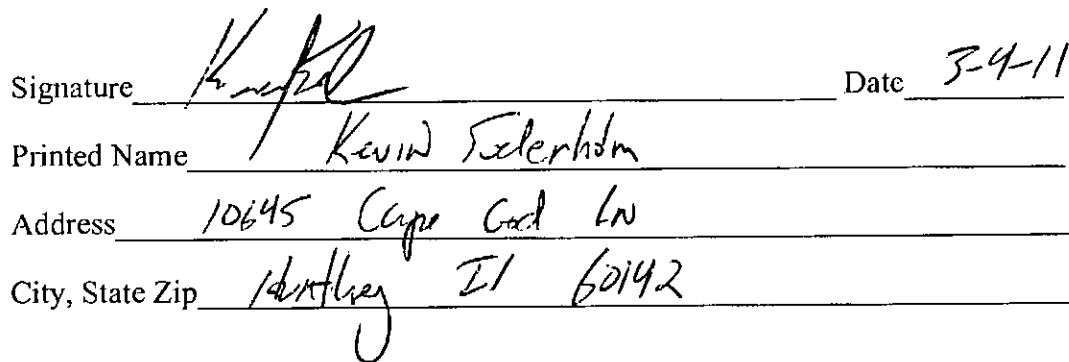 Signature Date 3-4-11
Printed Name Kevin
Address 10645 Cape Cod LN
City, State Zip Huntley Il 60142